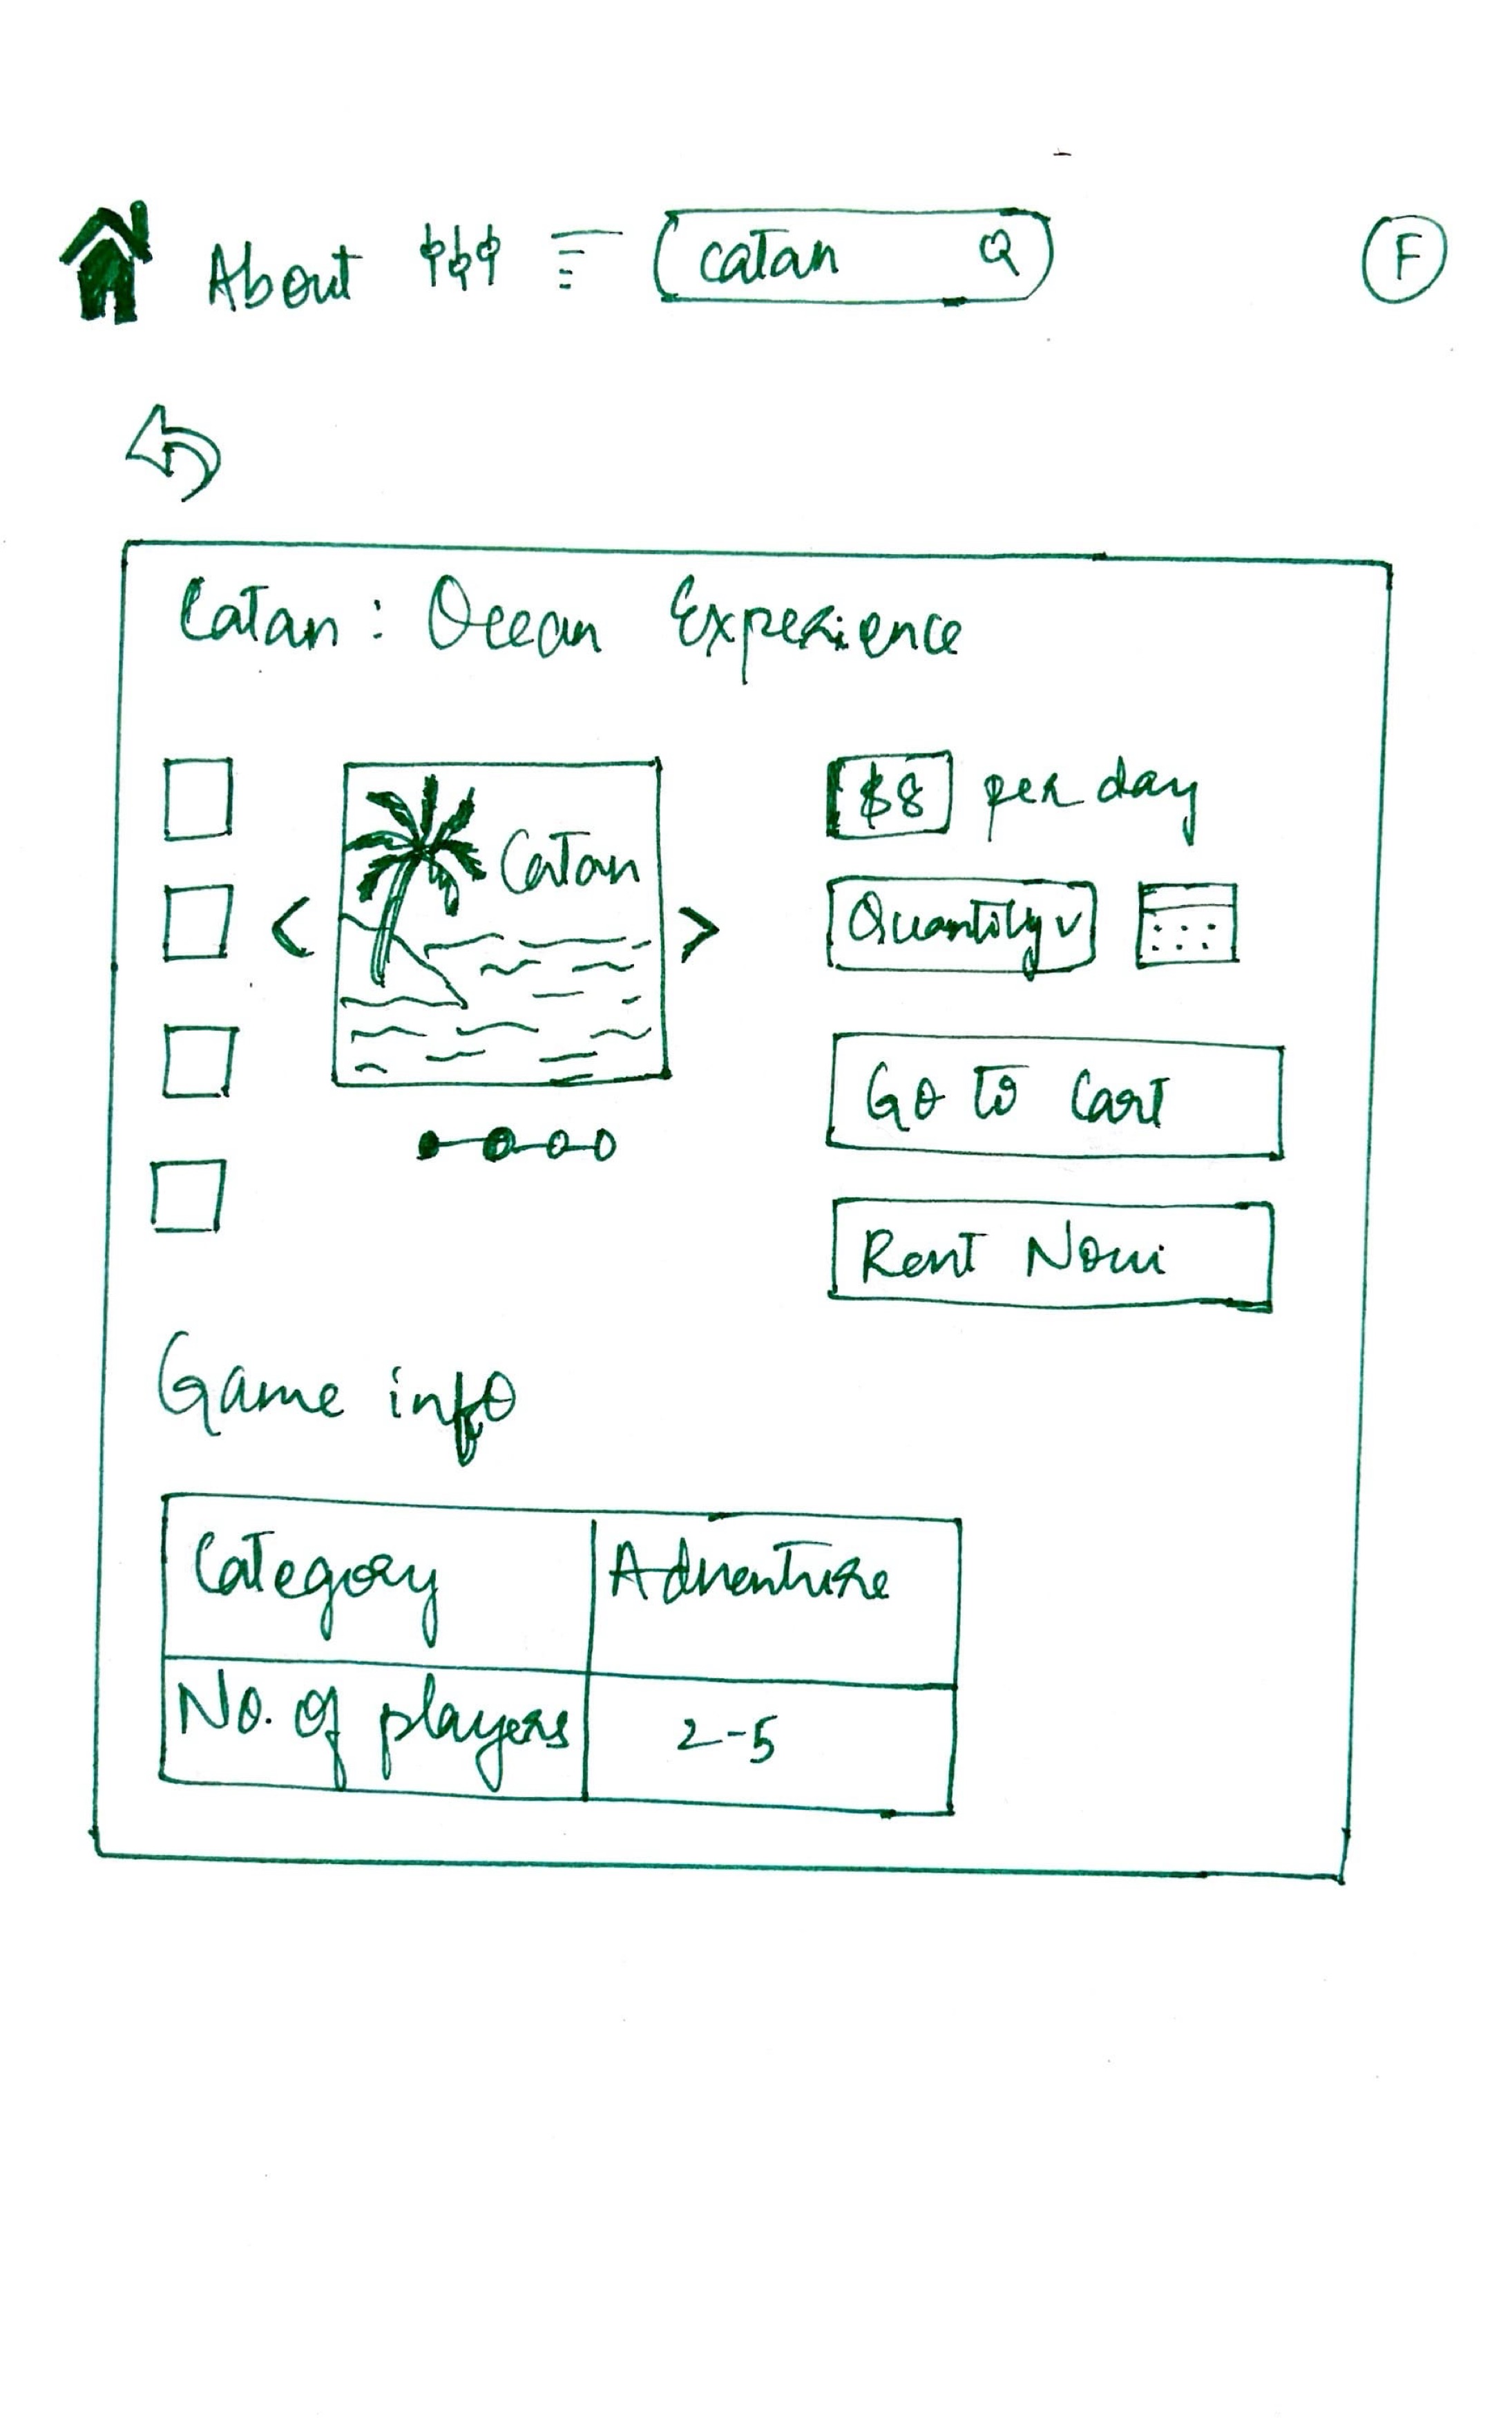 About catan F
Catan: Ocean Experience
Catan
$8 per day
Quantity
Go to Cart
Rent Now
Game info
Category Adventure
No. of players 2-5